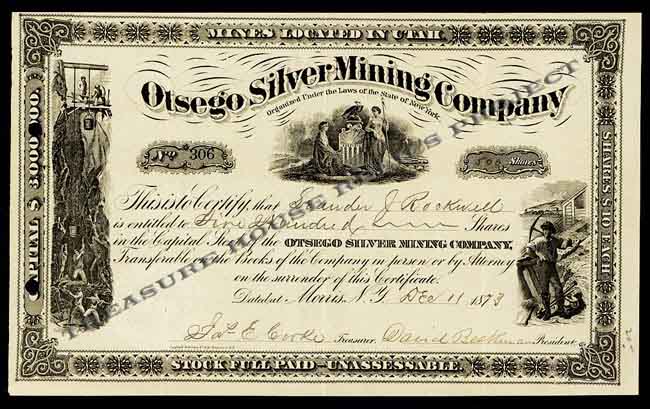 MINES LOCATED IN UTAH.
Otsego Silver Mining Company
Organized Under the Laws of the State of New York.
No 306
500 Shares
This is to Certify, that Leander J Rockwell
is entitled to Five Hundred Shares
in the Capital Stock of the OTSEGO SILVER MINING COMPANY,
Transferable on the Books of the Company in person or by Attorney
on the surrender of this Certificate.
Dated at Morris N.Y. Dec 11 1873
Jas E. Cooke Treasurer. David Beekman President
STOCK FULL PAID - UNASSESSABLE.
CAPITAL $ 3,000,000.
SHARES $10 EACH
TREASURE HOUSE RELICS PROJECT